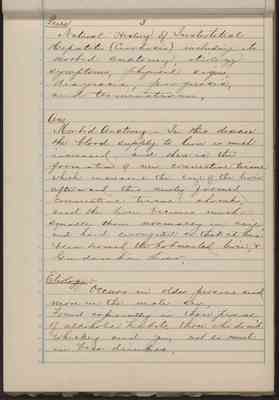 Ques 3
Natural History of Interstitial
Hepatitis (Cirrhosis) including its
morbid anatomy, etiology
symptoms, physical signs
diagnosis, prognosis,
and terminations.
Ans
Morbid Anatomy - In this disease
the blood supply to liver is much
increased and there is the
formation of new connective tissue
which increases the size of the liver
afterward this newly formed
connective tissue shrinks
and the liver becomes much
smaller than normally in size
and hard corrugated so that it has
been termed the hobnailed liver, &
Gin drunkards liver.
Etiology -
Occurs in older persons and
more in the male sex.
Found especially in those persons
of alcoholic habits those who drink
whiskey and gin not so much
in beer drinkers.